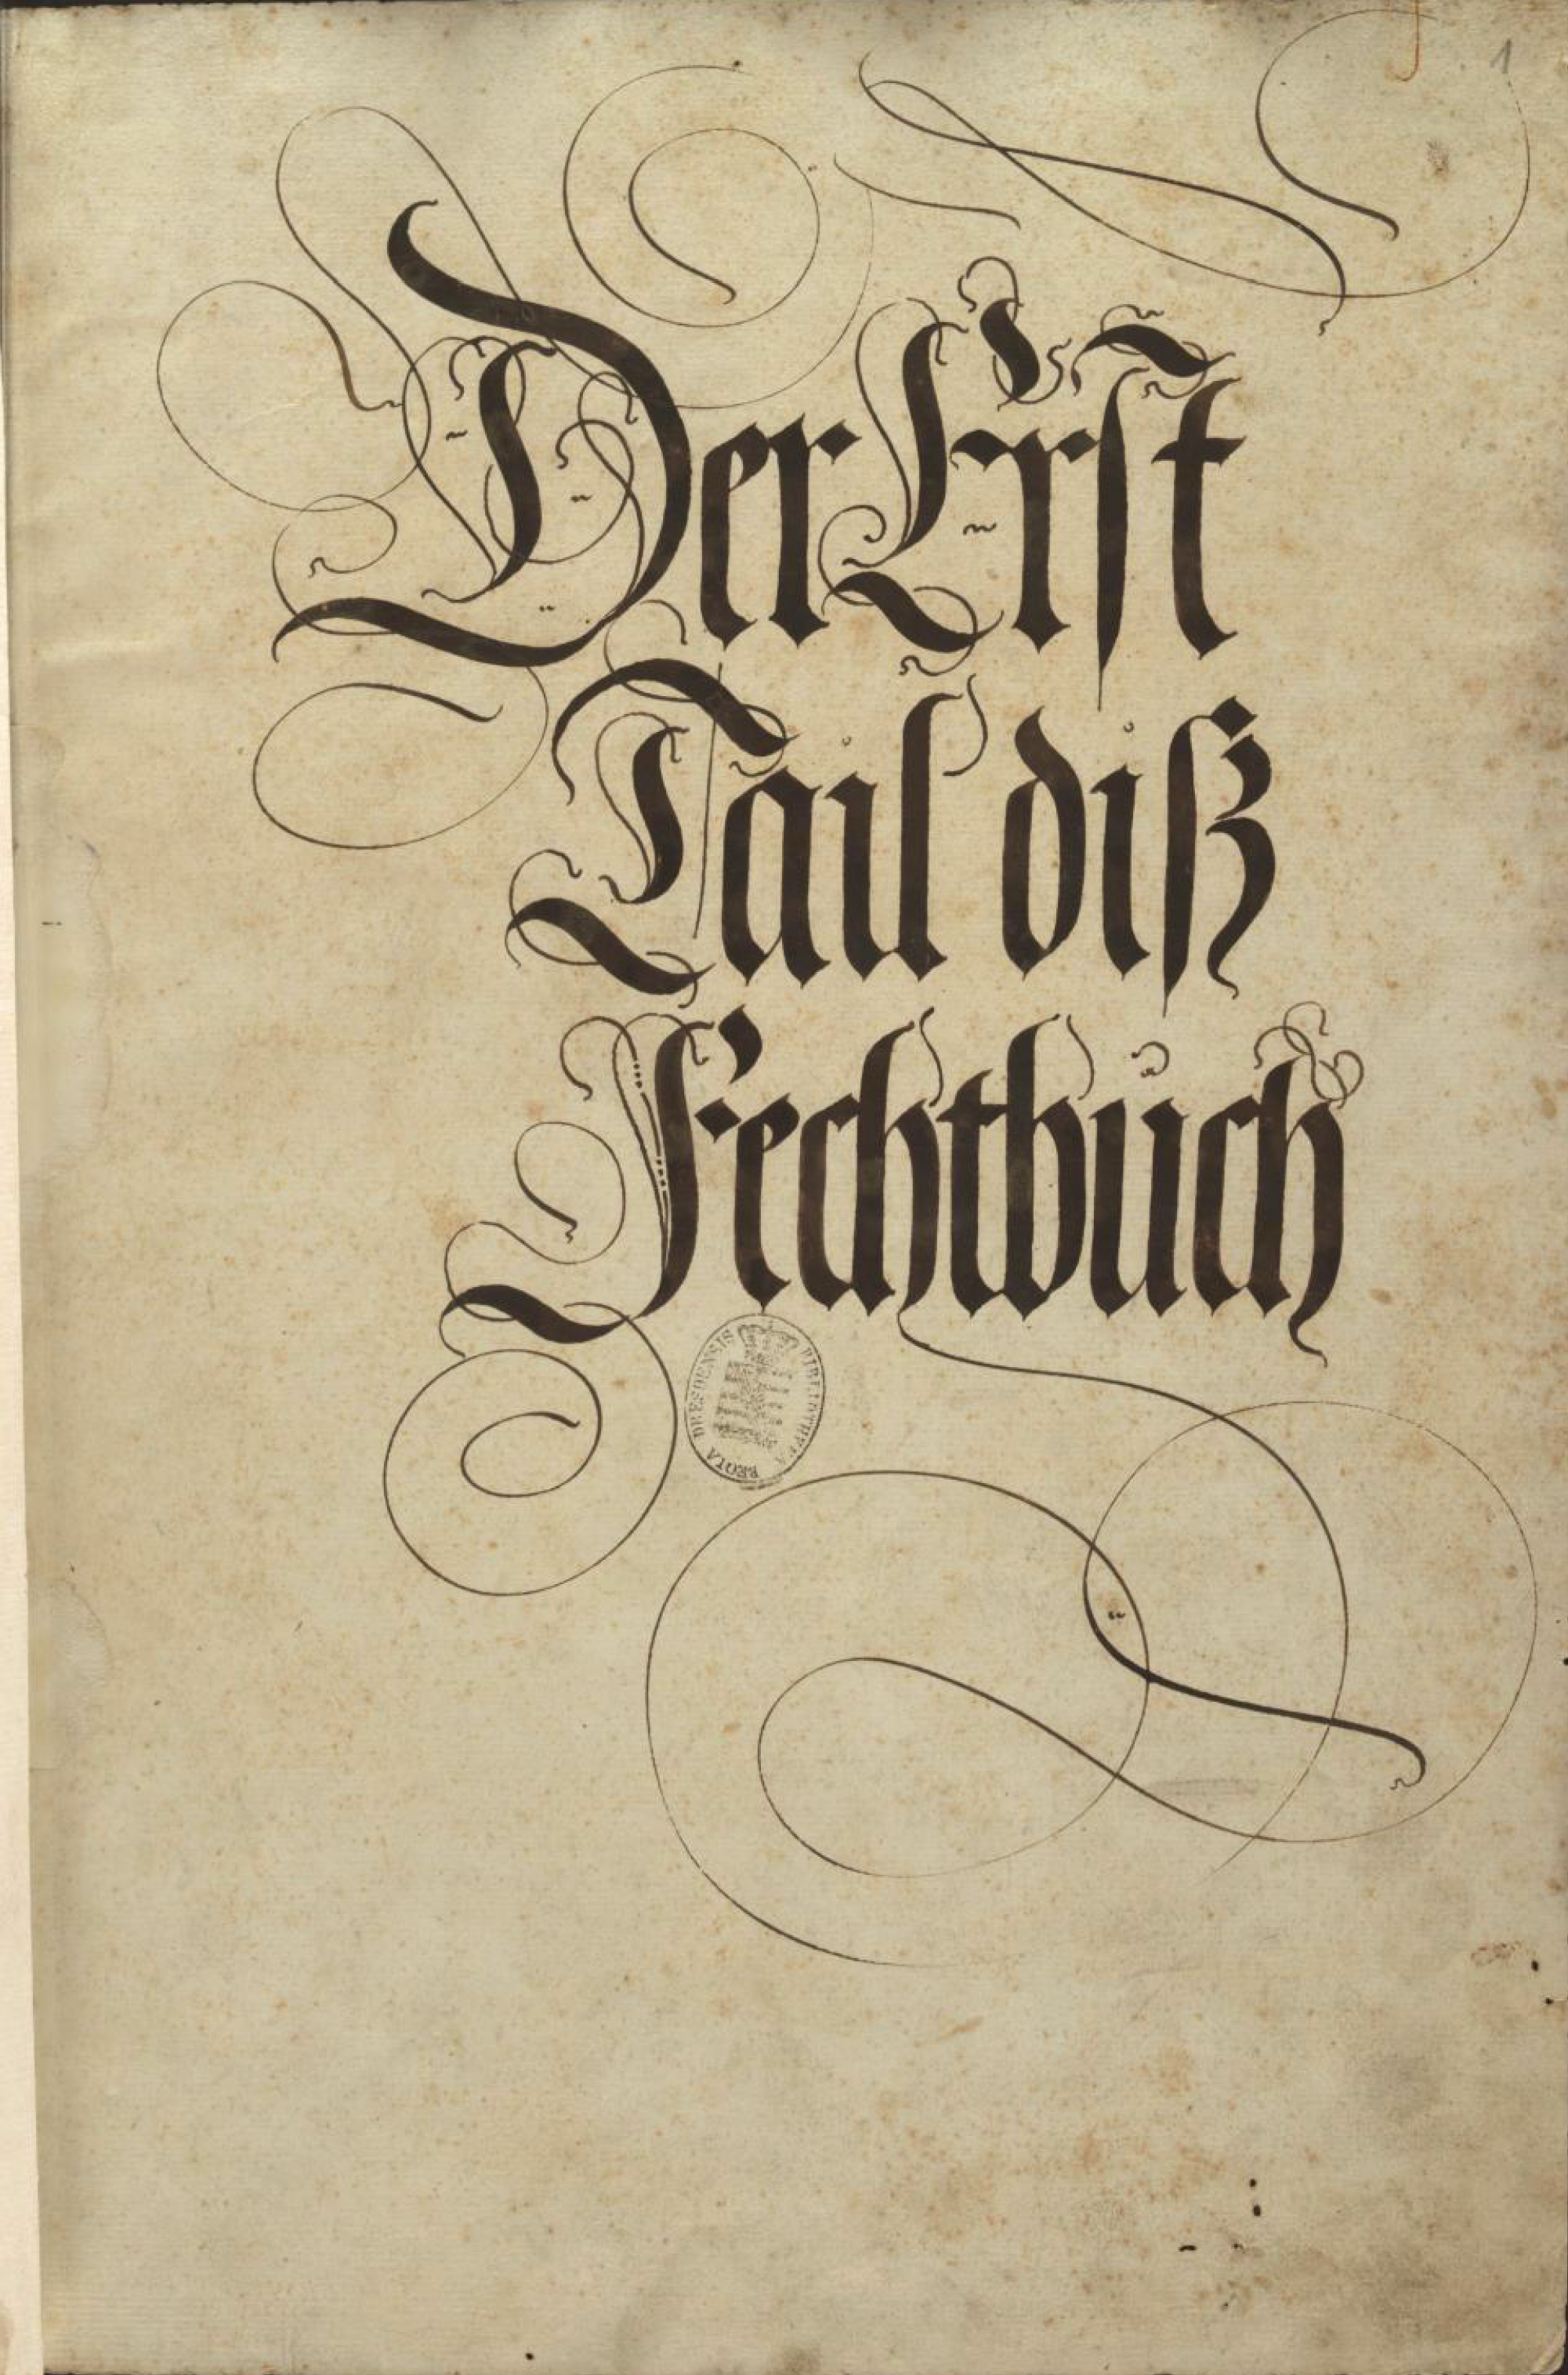 1
Der Erst
Tail diß
Fechtbuͦch
BIBLIOTHECA
REGIA DRESDENSIS